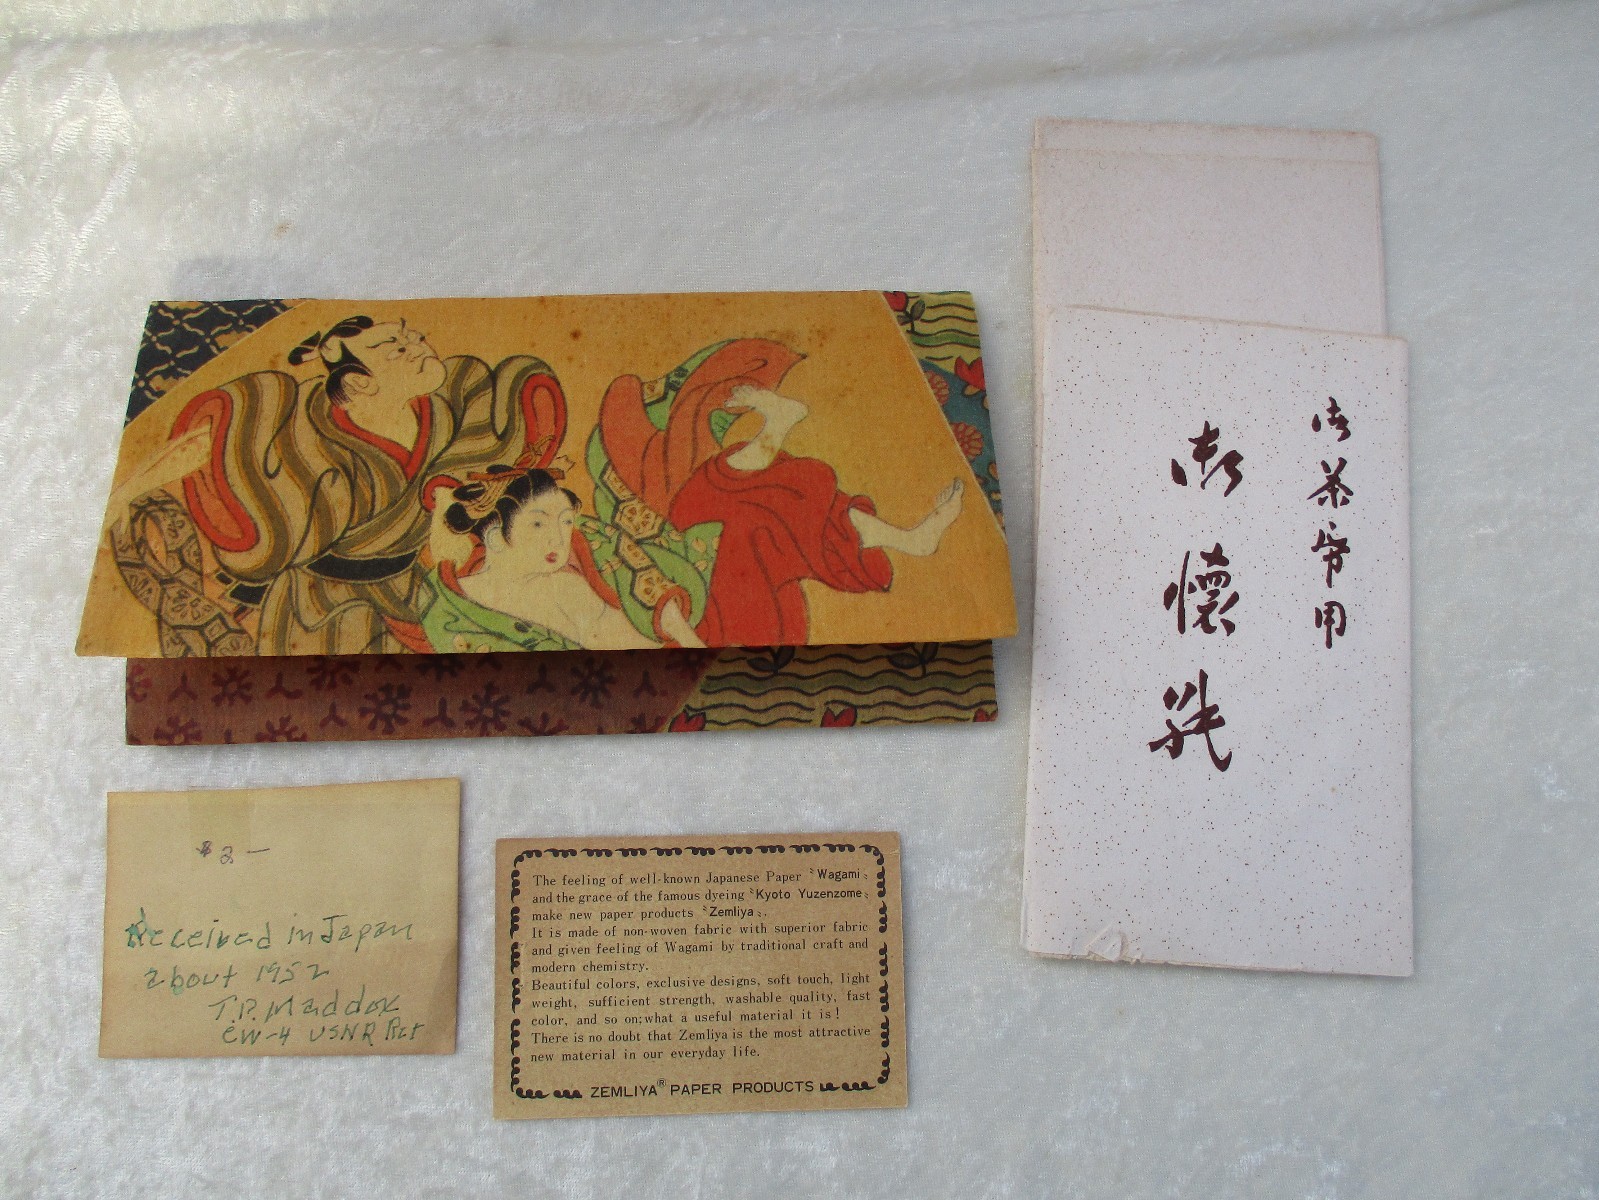 御茶席用
御懐紙
$2—
Received in Japan
about 1952
T.P. Maddox
CW-4 USNR Ret
The feeling of well-known Japanese Paper "Wagami"
and the grace of the famous dyeing "Kyoto Yuzenzome"
make new paper products "Zemliya".
It is made of non-woven fabric with superior fabric
and given feeling of Wagami by traditional craft and
modern chemistry.
Beautiful colors, exclusive designs, soft touch, light
weight, sufficient strength, washable quality, fast
color, and so on; what a useful material it is!
There is no doubt that Zemliya is the most attractive
new material in our everyday life.
ZEMLIYA® PAPER PRODUCTS